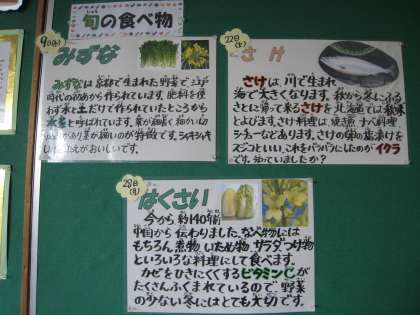 旬の食べ物
9日(水)
みずな
みずなは京都で生まれた野菜で江戸
時代の初めから作られています。肥料を使
わず水と土だけで作られていたところから
水菜と呼ばれています。葉が細長く細かい切
れ目があり茎が細いのが特徴です。シャキシャキ
がおいしいです。
22日(火)
さけ
さけは、川で生まれ
海で大きくなります。秋から冬にふる
さとに帰って来るさけを北海道では秋味
とよびます。さけ料理は、焼き魚、なべ料理
シチューなどあります。さけの卵の塩漬けを
スジコといい、これをバラバラにしたのが イクラ
です。知っていましたか?
28日(月)
はくさい
今から約140年前
中国から伝わりました。なべ物には
もちろん、煮物、いため物、サラダ、つけ物
といろいろな料理にして食べます。
カゼをひきにくくするビタミンCが
たくさんふくまれているので野菜
の少ない冬にはとても大切です。